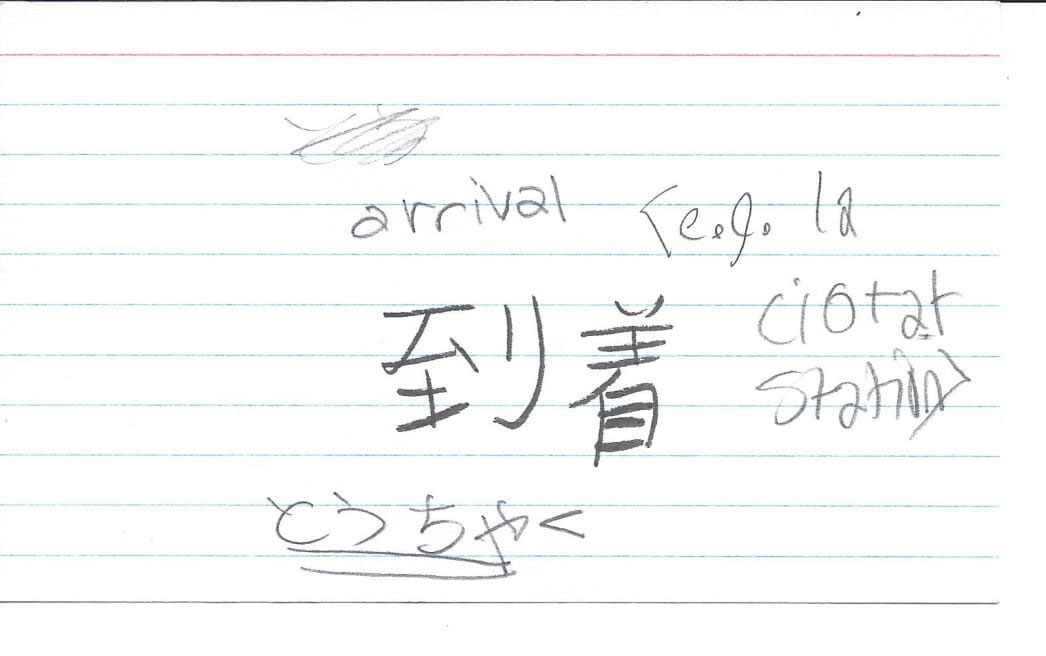 arrival <e.g. la
ciotat
station>
到着
とうちゃく